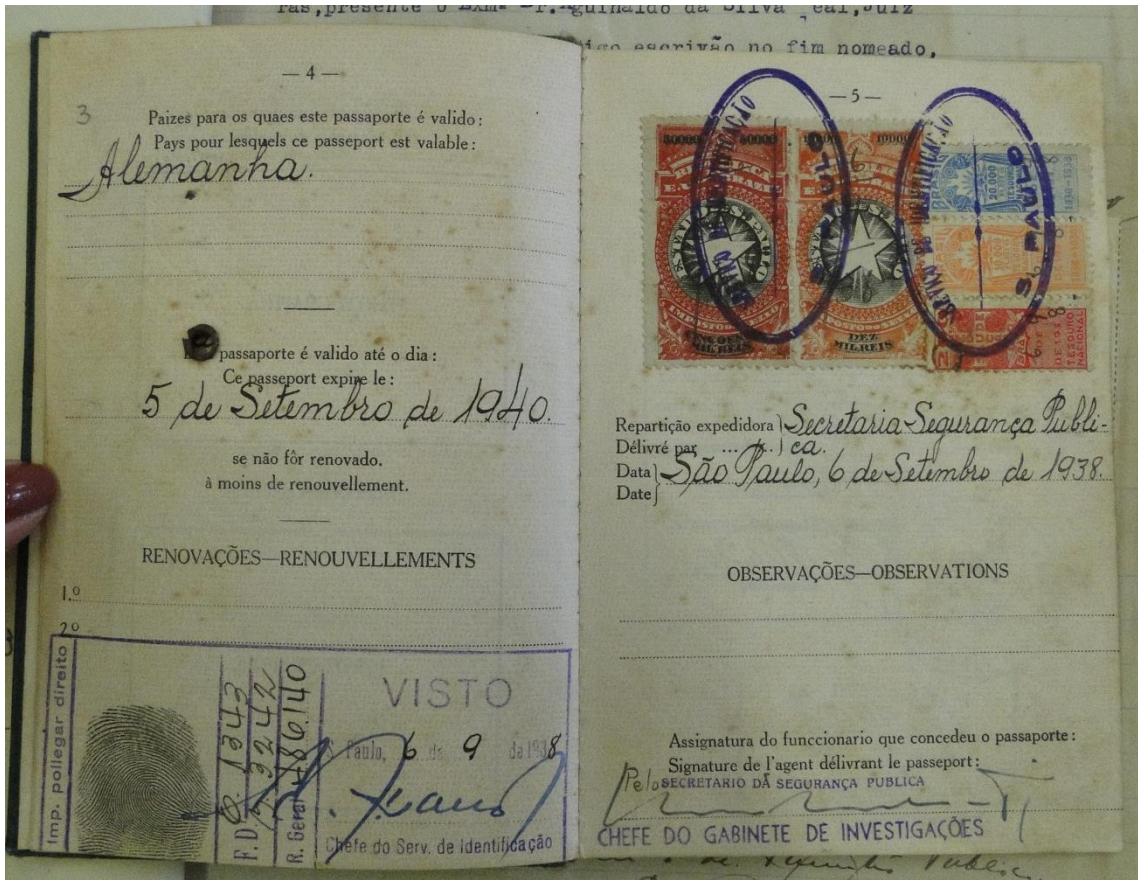 ras, presente o Exmº Dr. Aguinaldo da Silva Leal, Juiz
escrivão no fim nomeado,
— 4 —
3
Paizes para os quaes este passaporte é valido:
Pays pour lesquels ce passeport est valable:
Alemanha.
passaporte é valido até o dia:
Ce passeport expire le:
5 de Setembro de 1940.
se não fôr renovado.
à moins de renouvellement.
RENOVAÇÕES—RENOUVELLEMENTS
1.º
2º
Imp. pollegar direito
F.D.
R. Geral 486.140
VISTO
S. Paulo, 6 de 9 de 1938
Chefe do Serv. de Identificação
— 5 —
SERVIÇO DE IDENTIFICAÇÃO
S. PAULO
SERVIÇO DE IDENTIFICAÇÃO
S. PAULO
IMPOSTO DO SELLO
MIL REIS
10000
IMPOSTO DO SELLO
DEZ
MIL REIS
BRASIL
20.000
REIS
1936-1938
TESOURO
NACIONAL
Repartição expedidora Secretaria Segurança Publi-
Délivré par ... ca.
Data São Paulo, 6 de Setembro de 1938.
Date
OBSERVAÇÕES—OBSERVATIONS
Assignatura do funccionario que concedeu o passaporte:
Signature de l'agent délivrant le passeport:
Pelo SECRETARIO DA SEGURANÇA PUBLICA
CHEFE DO GABINETE DE INVESTIGAÇÕES